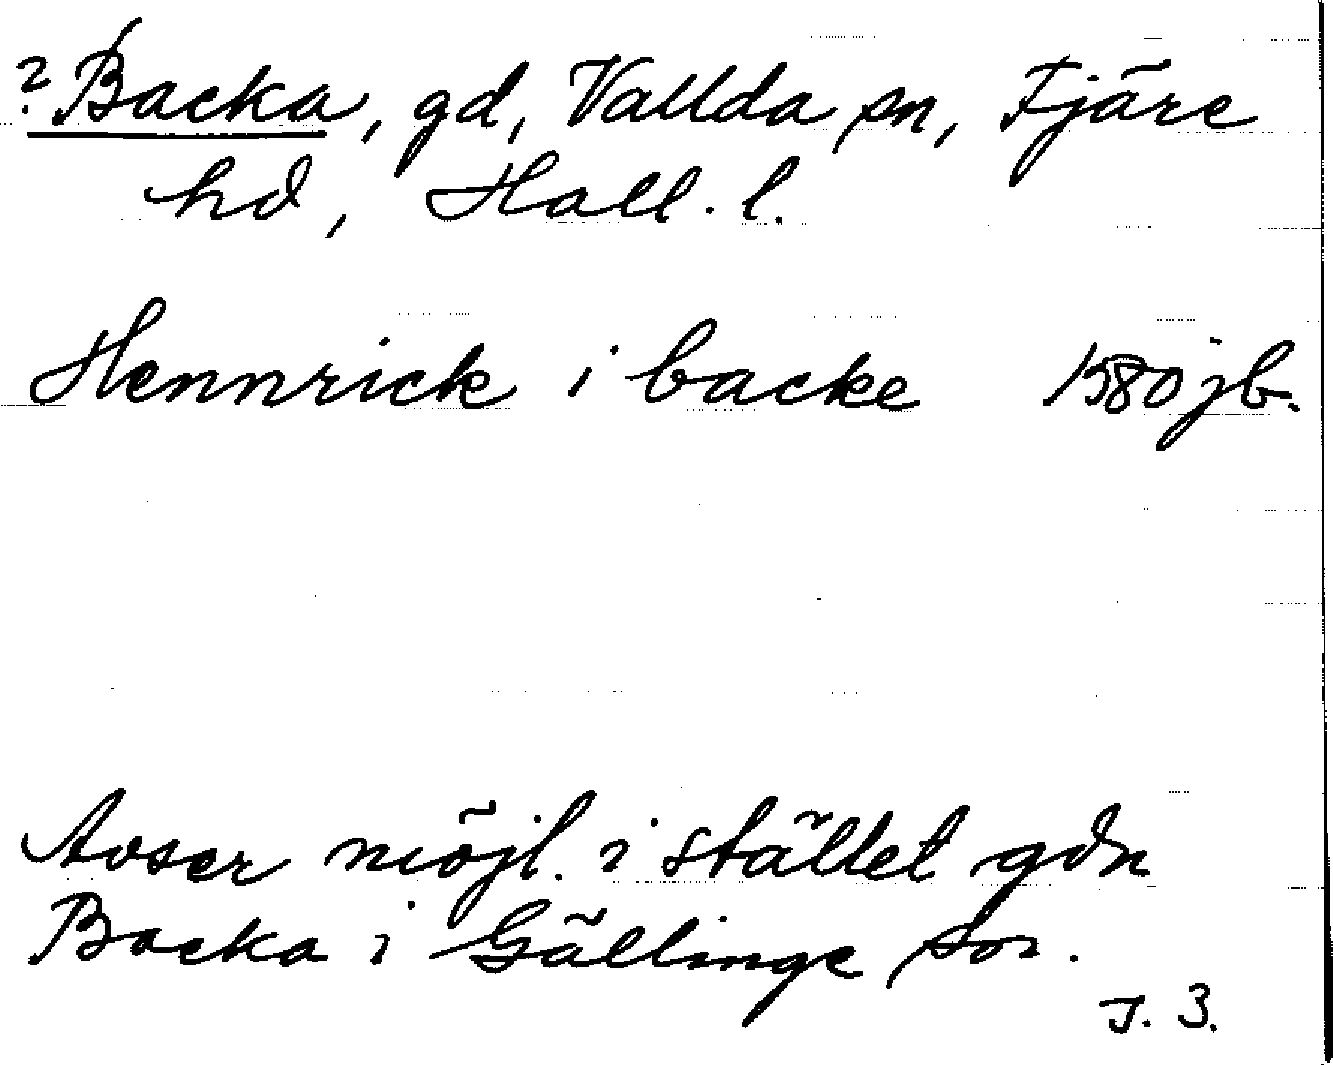 ? Backa, gd, Vallda sn, Fjäre
hd, Hall. l.
Hennrick i backe 1580 jb.
Avser möjl. i stället gdn
Backa i Gällinge sn.
J. 3.